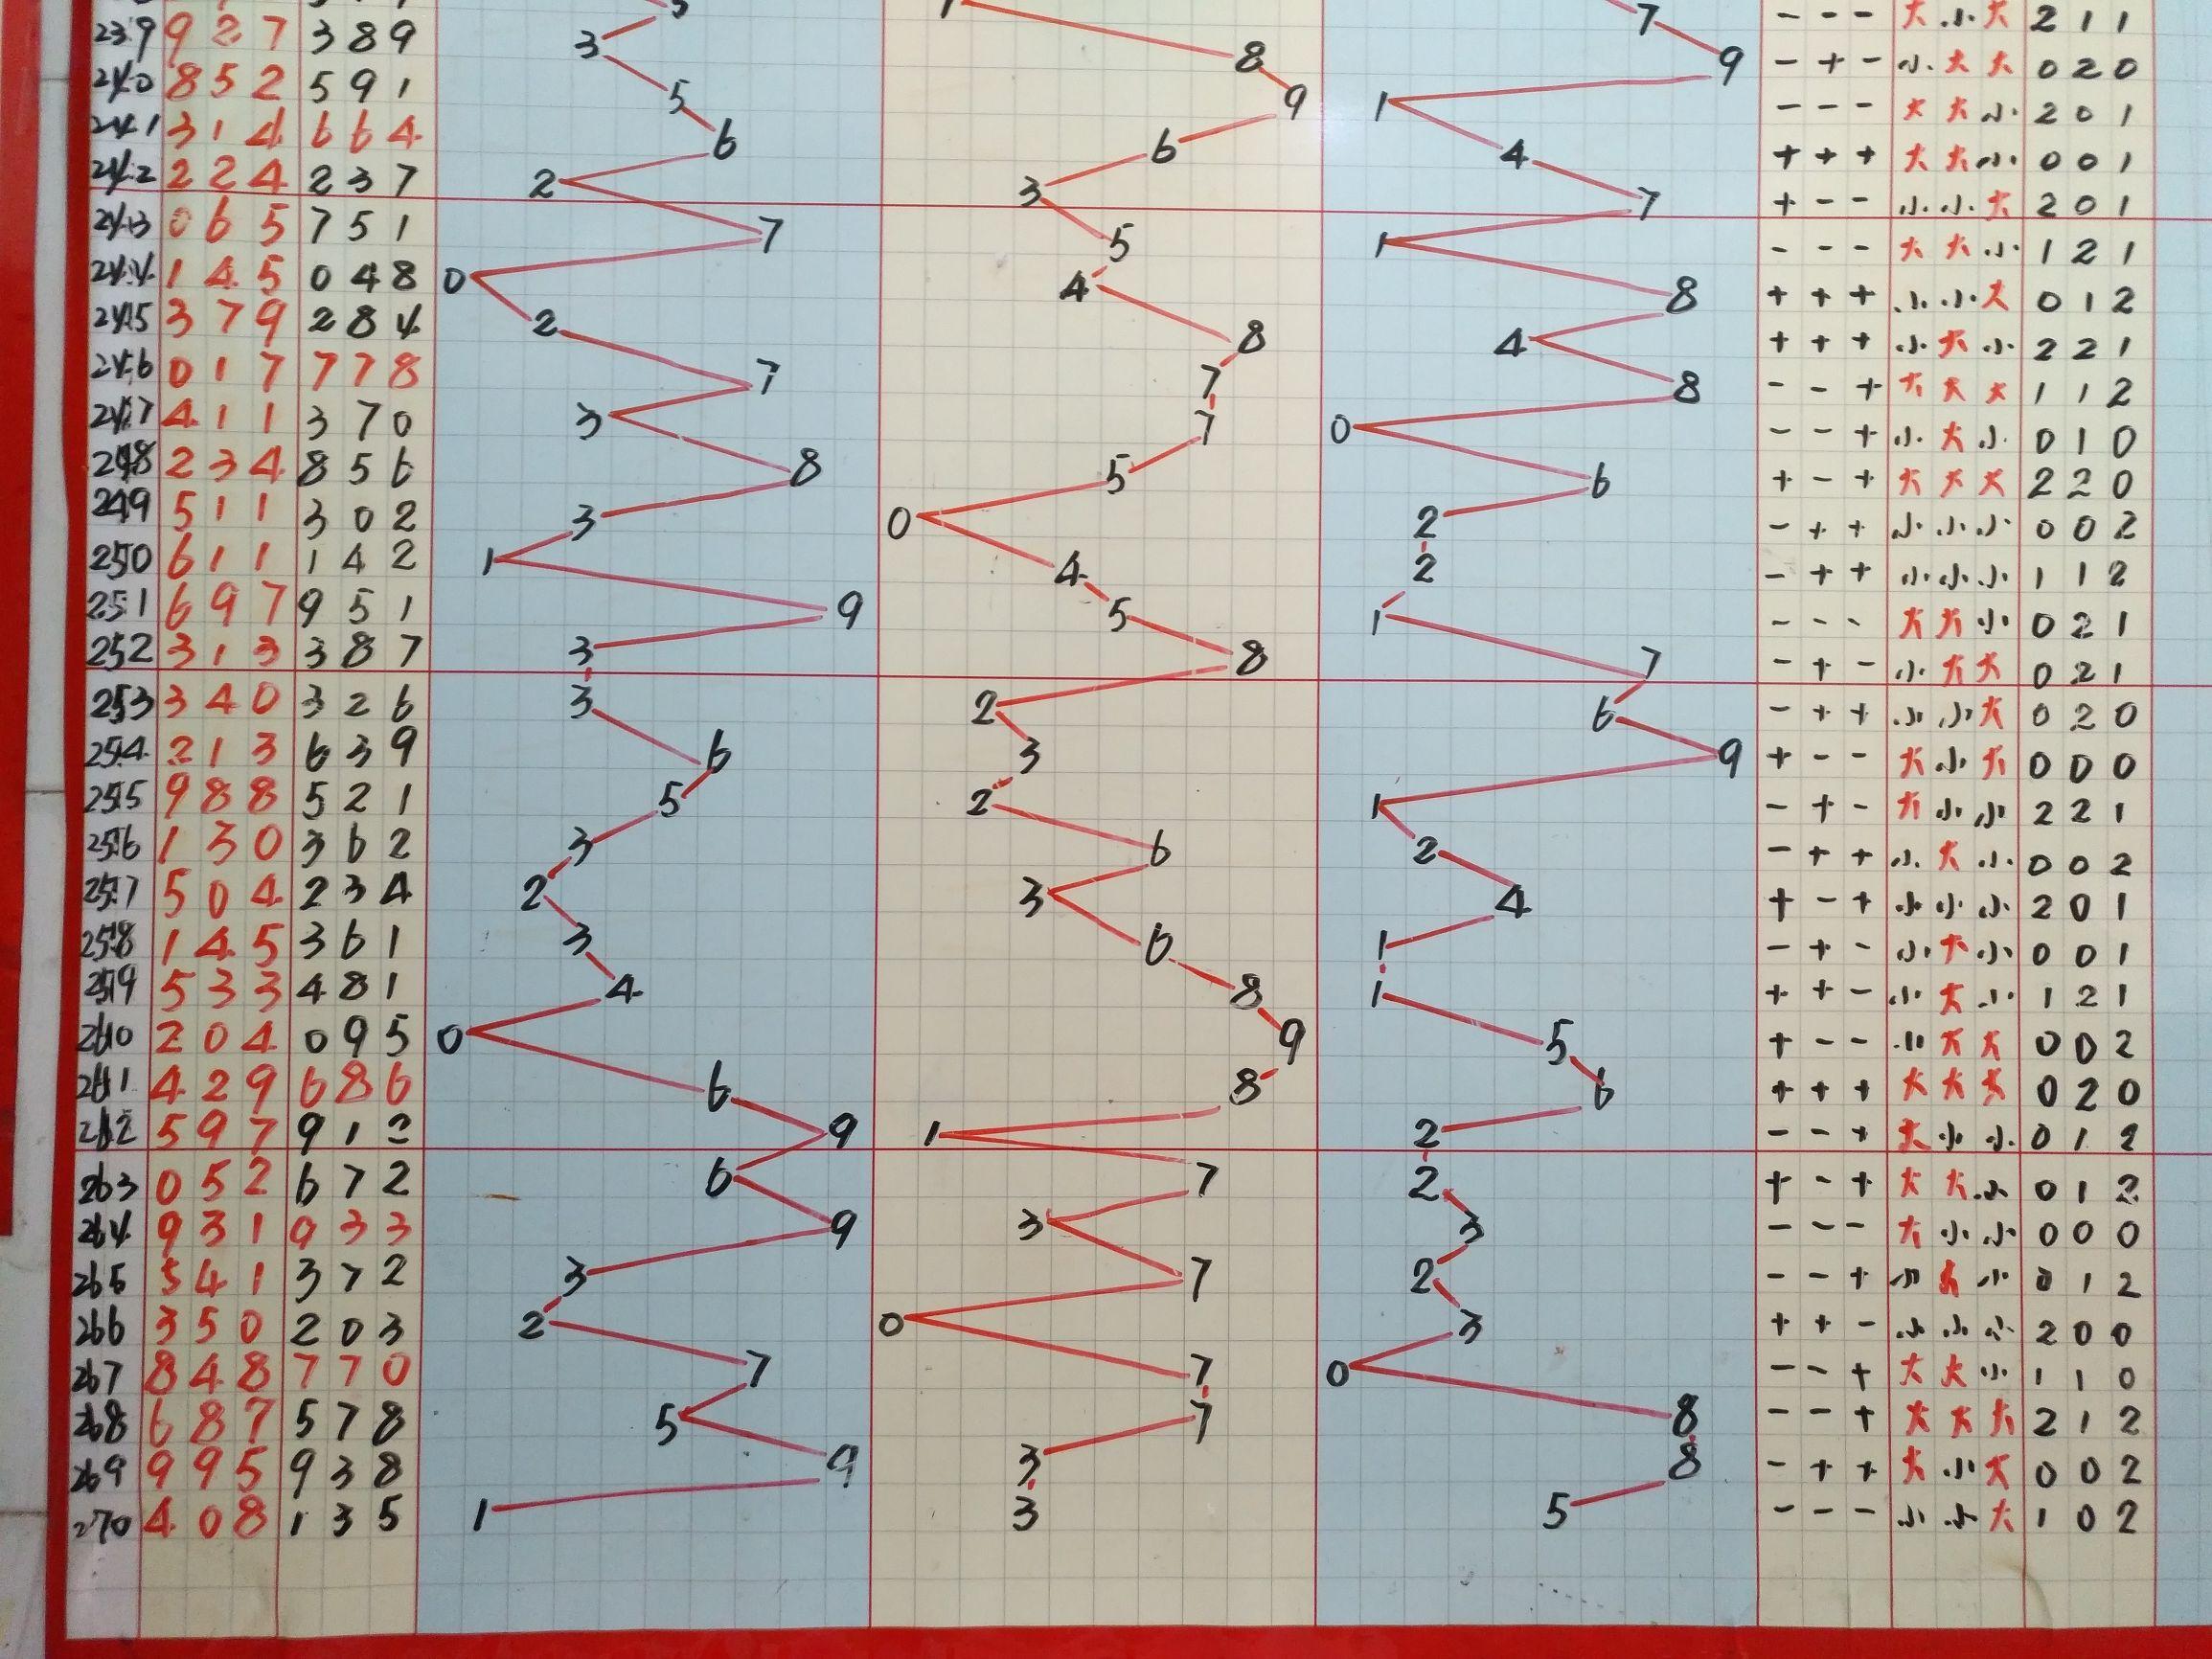 5 1 7 - - - 大 小 大 2 1 1
239 9 2 7 3 8 9 3 8 9 - + - 小 大 大 0 2 0
240 8 5 2 5 9 1 5 9 1 - - - 大 大 小 2 0 1
241 3 1 4 6 6 4 6 6 4 + + + 大 大 小 0 0 1
242 2 2 4 2 3 7 2 3 7 + - - 小 小 大 2 0 1
243 0 6 5 7 5 1 7 5 1 - - - 大 大 小 1 2 1
244 1 4 5 0 4 8 0 4 8 + + + 小 小 大 0 1 2
245 3 7 9 2 8 4 2 8 4 + + + 小 大 小 2 2 1
246 0 1 7 7 7 8 7 7 8 - - + 大 大 大 1 1 2
247 4 1 1 3 7 0 3 7 0 - - + 小 大 小 0 1 0
248 2 3 4 8 5 6 8 5 6 + - + 大 大 大 2 2 0
249 5 1 1 3 0 2 3 0 2 - + + 小 小 小 0 0 2
250 6 1 1 1 4 2 1 4 2 - + + 小 小 小 1 1 2
251 6 9 7 9 5 1 9 5 1 - - - 大 大 小 0 2 1
252 3 1 3 3 8 7 3 8 7 - + - 小 大 大 0 2 1
253 3 4 0 3 2 6 3 2 6 - + + 小 小 大 0 2 0
254 2 1 3 6 3 9 6 3 9 + - - 大 小 大 0 0 0
255 9 8 8 5 2 1 5 2 1 - + - 大 小 小 2 2 1
256 1 3 0 3 6 2 3 6 2 - + + 小 大 小 0 0 2
257 5 0 4 2 3 4 2 3 4 + - + 小 小 小 2 0 1
258 1 4 5 3 6 1 3 6 1 - + - 小 大 小 0 0 1
259 5 3 3 4 8 1 4 8 1 + + - 小 大 小 1 2 1
260 2 0 4 0 9 5 0 9 5 + - - 小 大 大 0 0 2
261 4 2 9 6 8 6 6 8 6 + + + 大 大 大 0 2 0
262 5 9 7 9 1 2 9 1 2 - - + 大 小 小 0 1 2
263 0 5 2 6 7 2 6 7 2 + - + 大 大 小 0 1 2
264 9 3 1 9 3 3 9 3 3 - - - 大 小 小 0 0 0
265 5 4 1 3 7 2 3 7 2 - - + 小 大 小 0 1 2
266 3 5 0 2 0 3 2 0 3 + + - 小 小 小 2 0 0
267 8 4 8 7 7 0 7 7 0 - - + 大 大 小 1 1 0
268 6 8 7 5 7 8 5 7 8 - - + 大 大 大 2 1 2
269 9 9 5 9 3 8 9 3 8 - + + 大 小 大 0 0 2
270 4 0 8 1 3 5 1 3 5 - - - 小 小 大 1 0 2